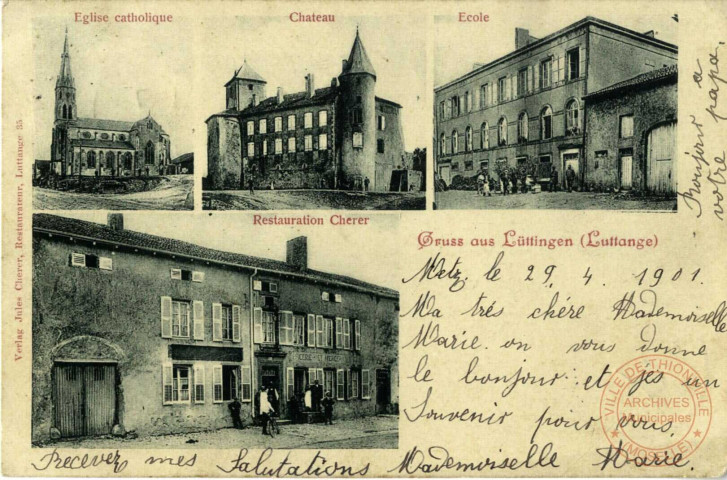 Eglise catholique
Chateau
Ecole
Restauration Cherer
Gruss aus Lüttingen (Luttange)
Verlag Jules Cherer, Restaurateur, Luttange 35
Metz. le 29. 4. 1901.
Ma trés chére Mademoiselle
Marie. on vous donne
le bonjour et ses un
Souvenir pour vous.
Recever mes Salutations Mademoiselle Marie.
Bonjour a
votre papa.
VILLE DE THIONVILLE
ARCHIVES
Municipales
(MOSELLE)